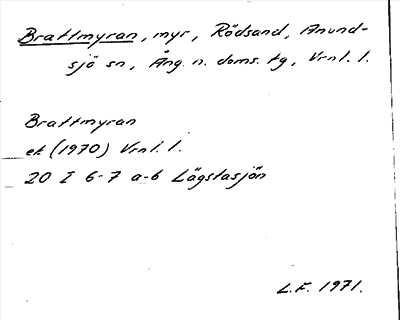 Brattmyran, myr, Rödsand, Anund-
sjö sn, Ång. n. doms. tg, Vrnl. l.
Brattmyran
ek (1970) Vrnl. l.
20 I 6-7 a-b Lägstasjön
L.F. 1971.